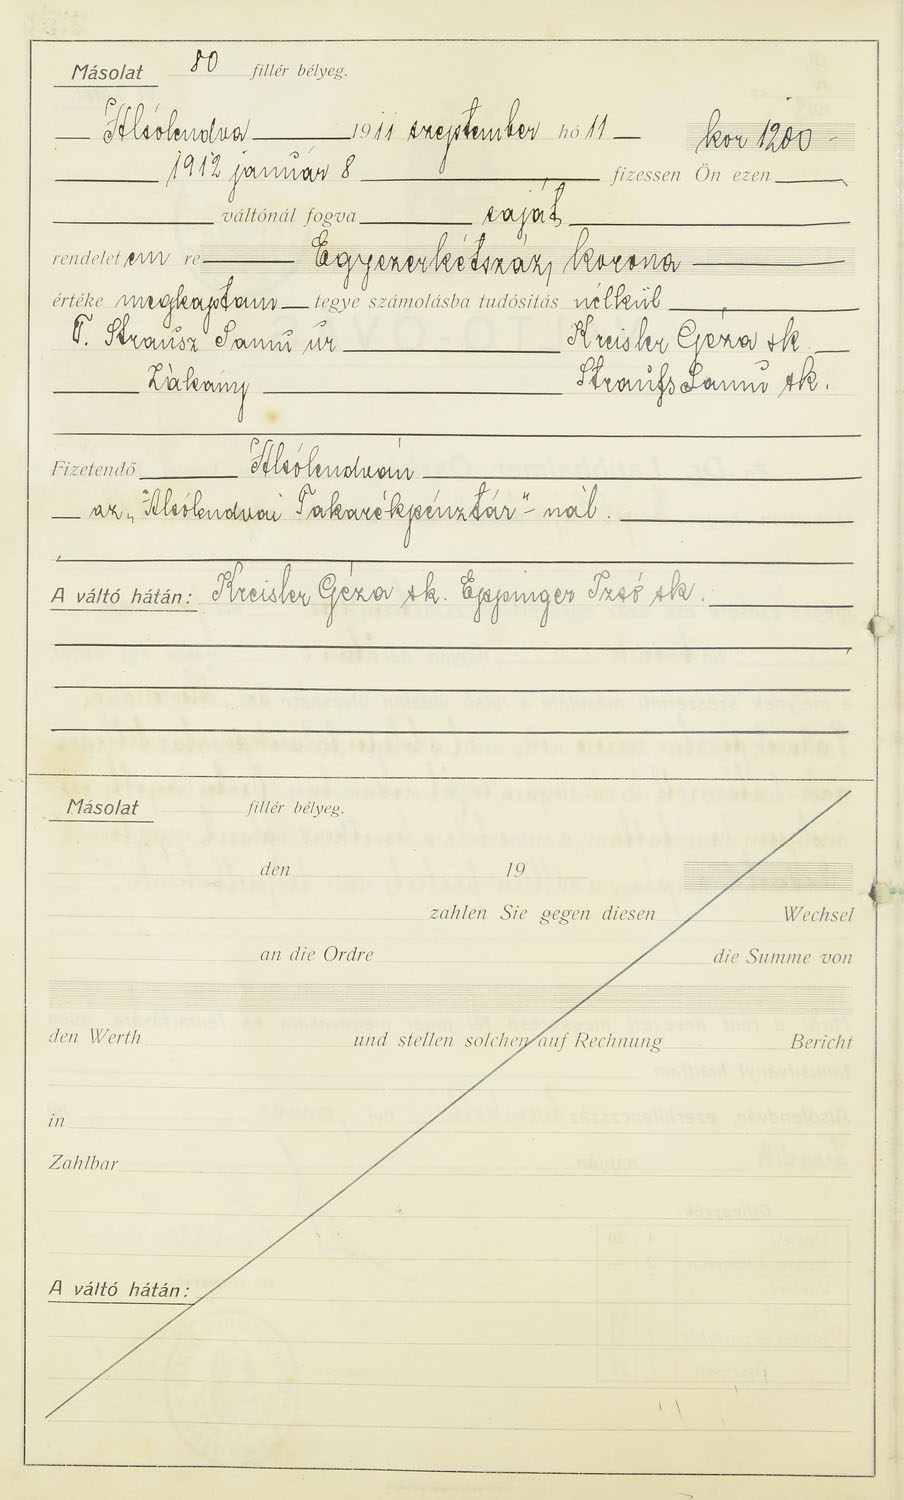 Másolat 80 fillér bélyeg.
Alsólendva 1911 szeptember hó 11 kor 1200
1912 január 8 fizessen Ön ezen
váltónál fogva saját
rendeletem re Egyezerkétszáz korona
értéke megkaptam tegye számolásba tudósitás nélkül
T. Strausz Samu úr Kreisler Géza sk.
Zákány Straufs Samu sk.
Fizetendő Alsólendván
az „Alsólendvai Takarékpénztár"-nál.
A váltó hátán: Kreisler Géza sk. Eppinger Izsó sk.
Másolat fillér bélyeg.
den 19
zahlen Sie gegen diesen Wechsel
an die Ordre die Summe von
den Werth und stellen solchen auf Rechnung Bericht
in
Zahlbar
A váltó hátán: